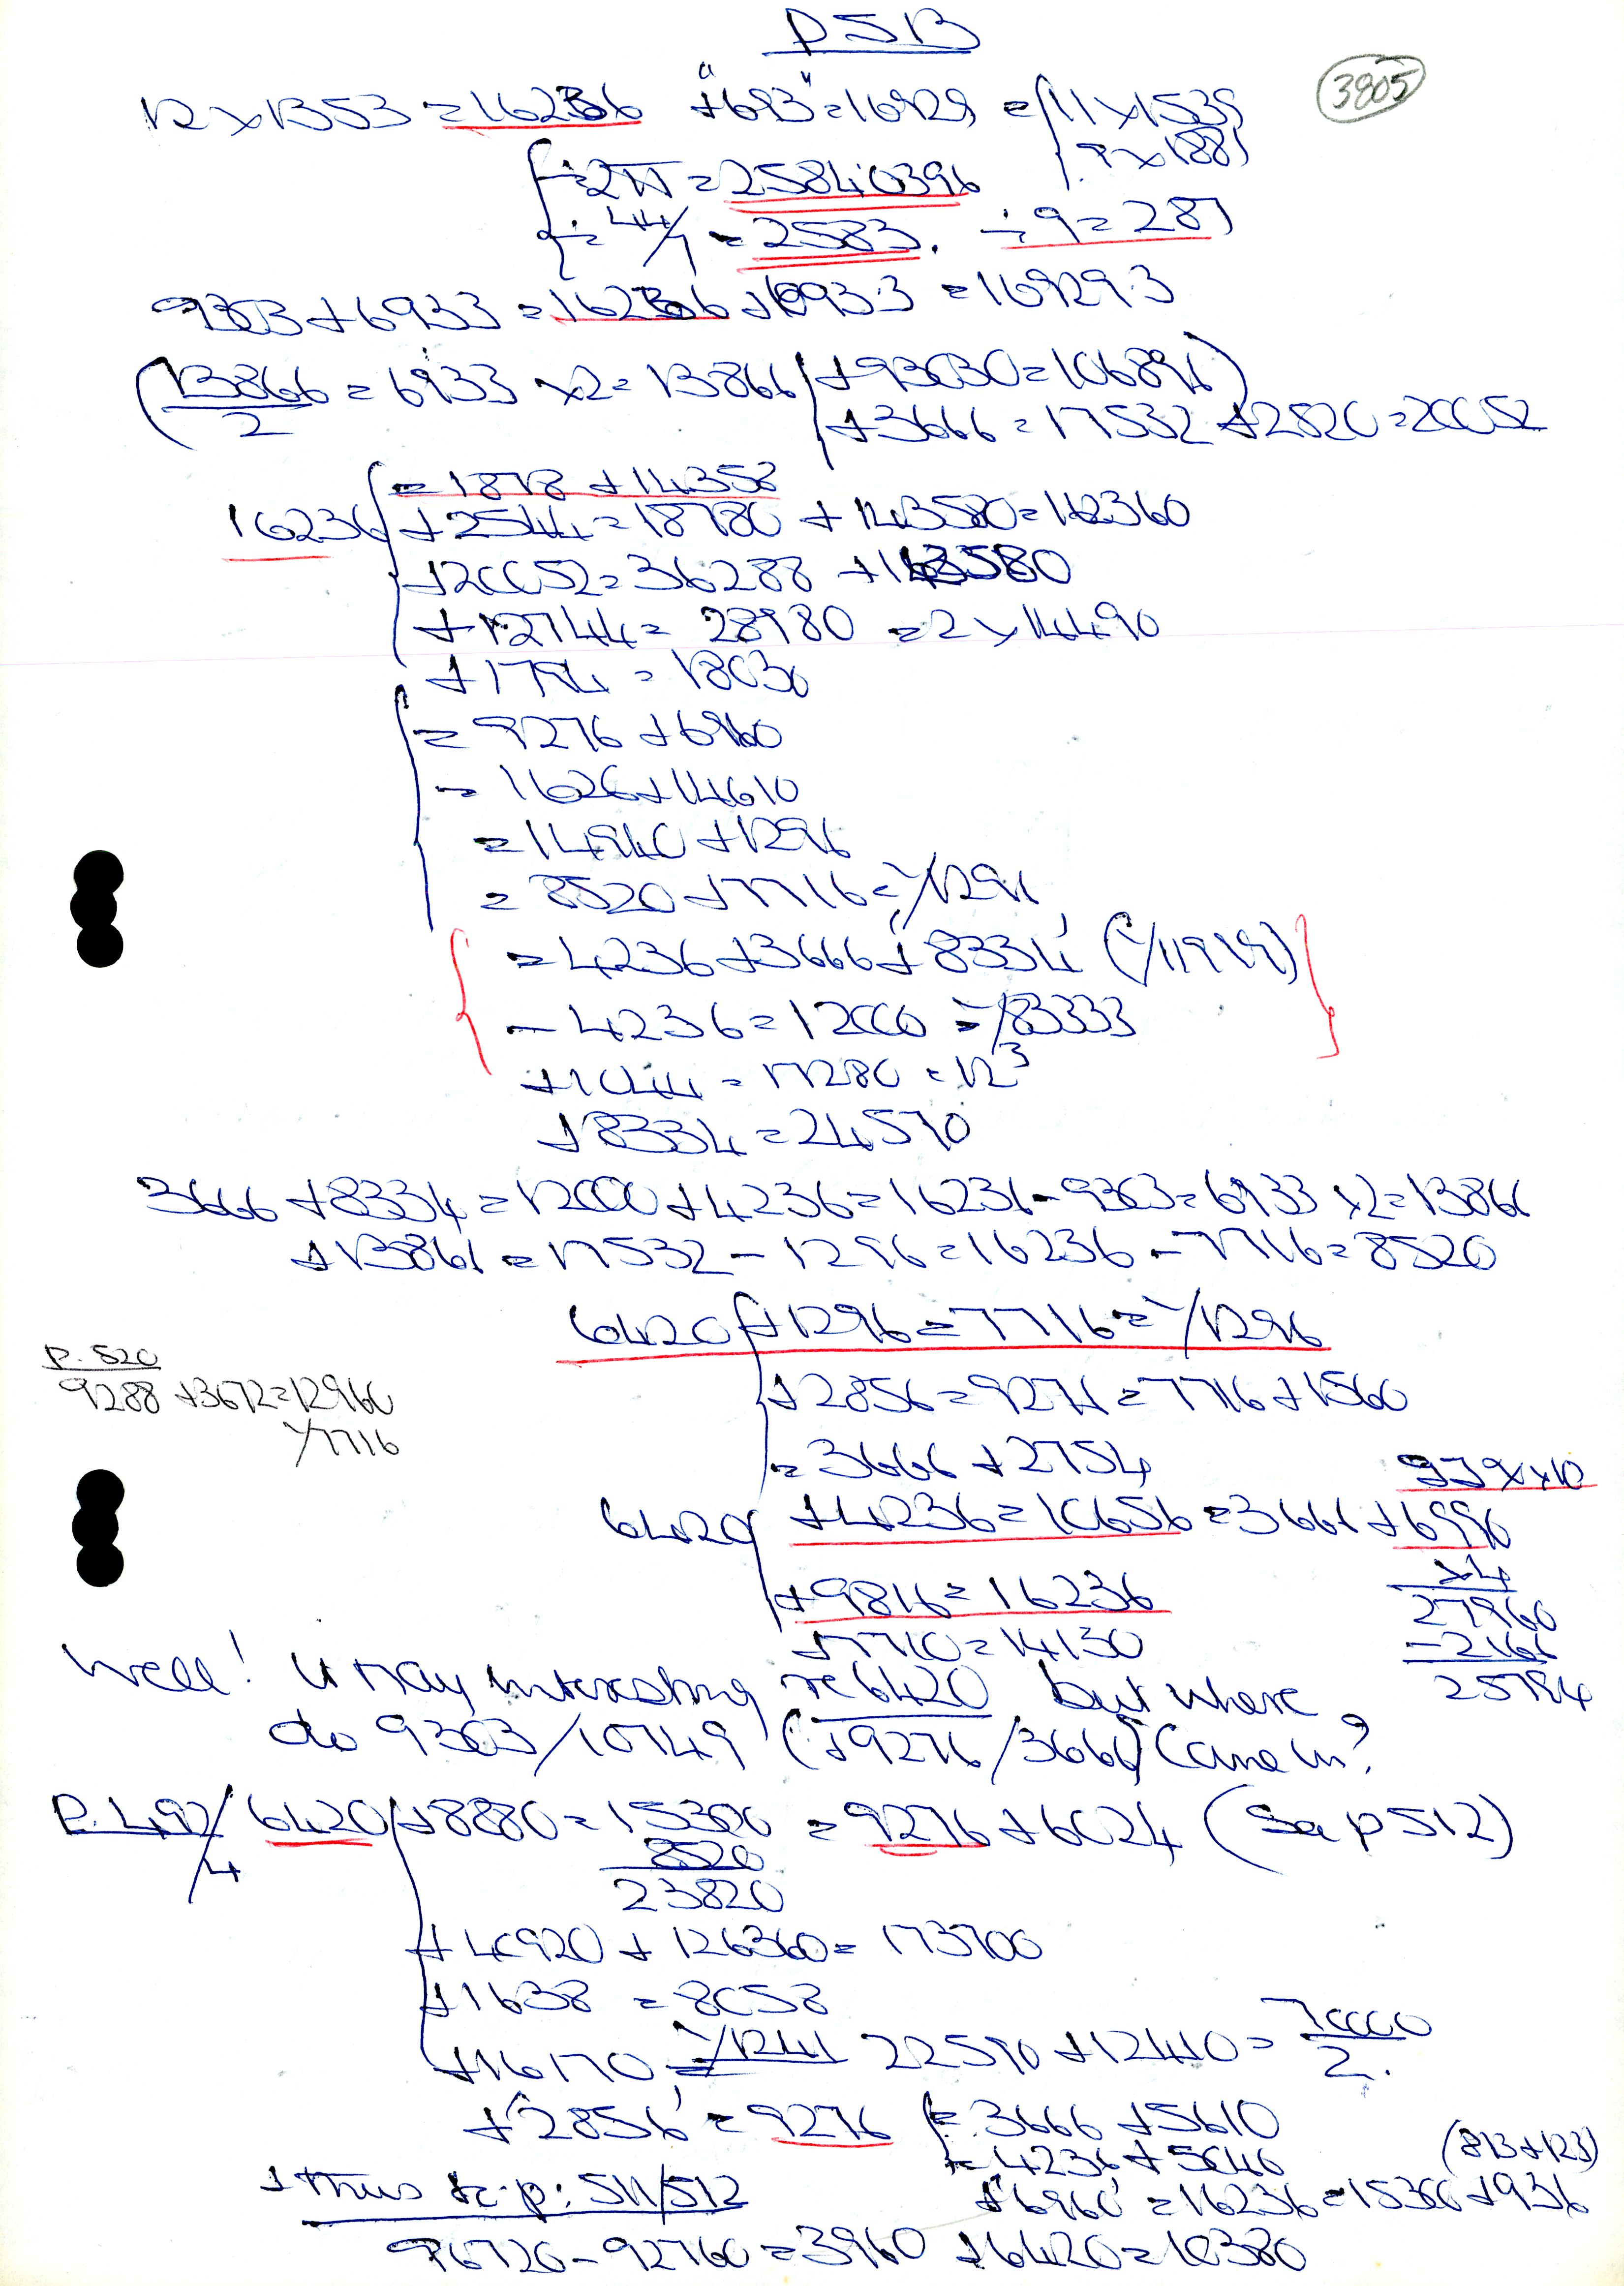 P 513
3805
12 x 1353 = 16236 "+693" = 16929 = { 11 x 1539
9 x 1881
{ ÷ 2π = 25840396
÷ 44/7 = 2583. ÷ 9 = 287
9303 + 6933 = 16236 + 693.3 = 16929.3
( 13866/2 = 6933 x2 = 13866 { + 93030 = 106896 )
+ 3666 = 17532 + 2520 = 20052
16236 { = 1878 + 14358
+ 2544 = 18780 + 143580 = 162360
+ 20052 = 36288 + 143580
+ 12744 = 28980 = 2 x 14490
+ 1794 = 18030
{ = 9276 + 6960
= 1626 + 14610
= 14940 + 1296
= 8520 + 7716 = 1/1296
{ = 4236 + 3666 + '8334' (1/11998) }
- 4236 = 12000 = 1/83333
+ 1044 = 17280 = 12³
+ 8334 = 24570
3666 + 8334 = 12000 + 4236 = 16236 - 9303 = 6933 x2 = 13866
+ 13866 = 17532 - 1296 = 16236 - 7716 = 8520
6420 { + 1296 = 7716 = 1/1296
P. 520
9288 + 3672 = 12960
1/7716
+ 2856 = 9276 = 7716 + 1560
= 3666 + 2754
939 x 10
6420 { + 4236 = 10656 = 3666 + 6990
x4
+ 9816 = 16236
27960
+ 7710 = 14130
- 2166
25794
Well! V. may interesting re 6420 but where
do 9303/10749 (+9276/3666) come in?
P. 492/4 6420 { + 8880 = 15300 = 9276 + 6024 (See p 512)
8520
23820
+ 40920 + 126360 = 173700
+ 1638 = 8058
+ 16170 = 1/1241 22590 + 12410 = 70000/2.
+ '2856' = 9276 { = 3666 + 5610
= 4236 + 5040
(813 + 123)
+ thus to p. 511/512
+ '6960' = 16236 = 15300 + 936
96720 - 92760 = 3960 + 6420 = 10380